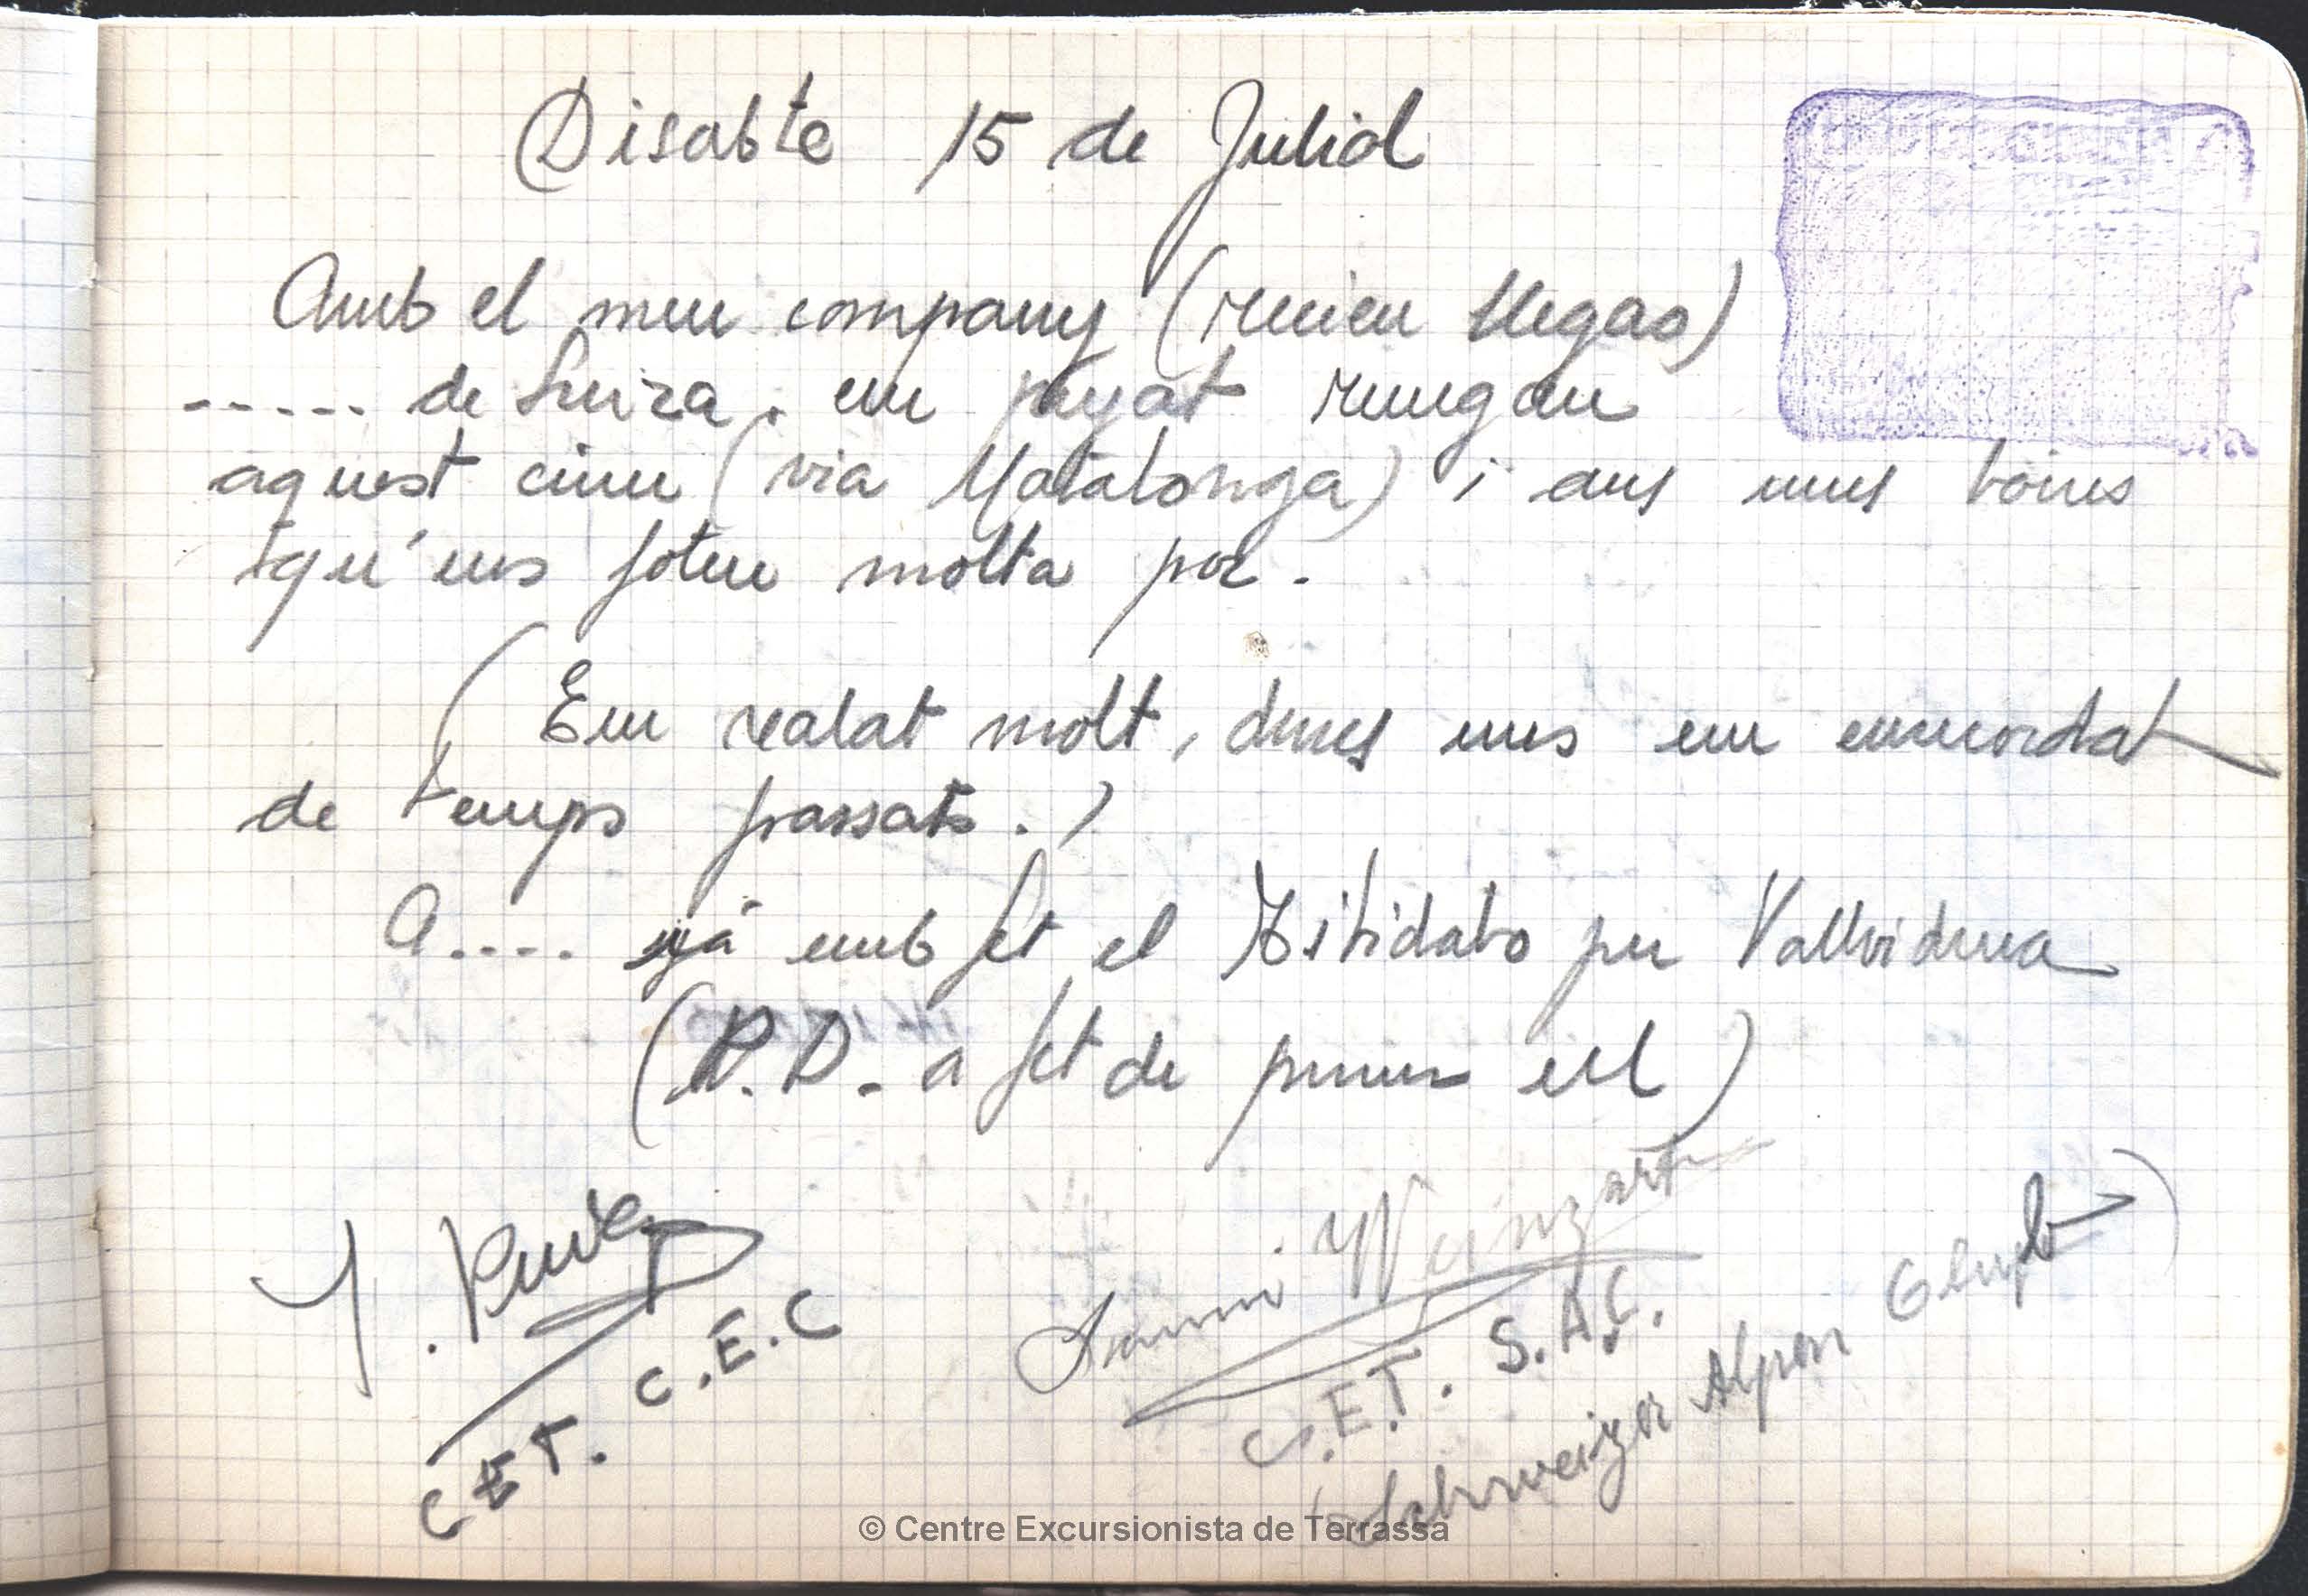 Disabte 15 de Juliol
Amb el meu company (recien llegao)
..... de Suiza. em pujat renegan
aquest cim (via Matalonga) i
qu'ens foten molta por.
(Em ralat molt, dunçs ens em enrecordat
de temps passats.)
A.... ja emb fet el Tibidabo per Vallvidrera
(P.D. a fet de primer ell)
C.E.T. C.E.C
C.E.T. S.A.C.
(Schweizer Alpen Club)
© Centre Excursionista de Terrassa